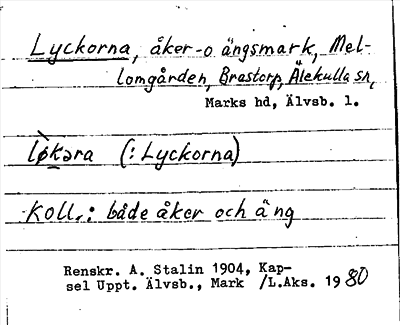 Lyckorna, åker-o ängsmark, Mel-
lomgården, Brastorp, Älekulla sn,
Marks hd, Älvsb. l.
lø̀kəra (: Lyckorna)
Koll.: både åker och äng
Renskr. A. Stalin 1904, Kap-
sel Uppt. Älvsb., Mark /L.Aks. 1980